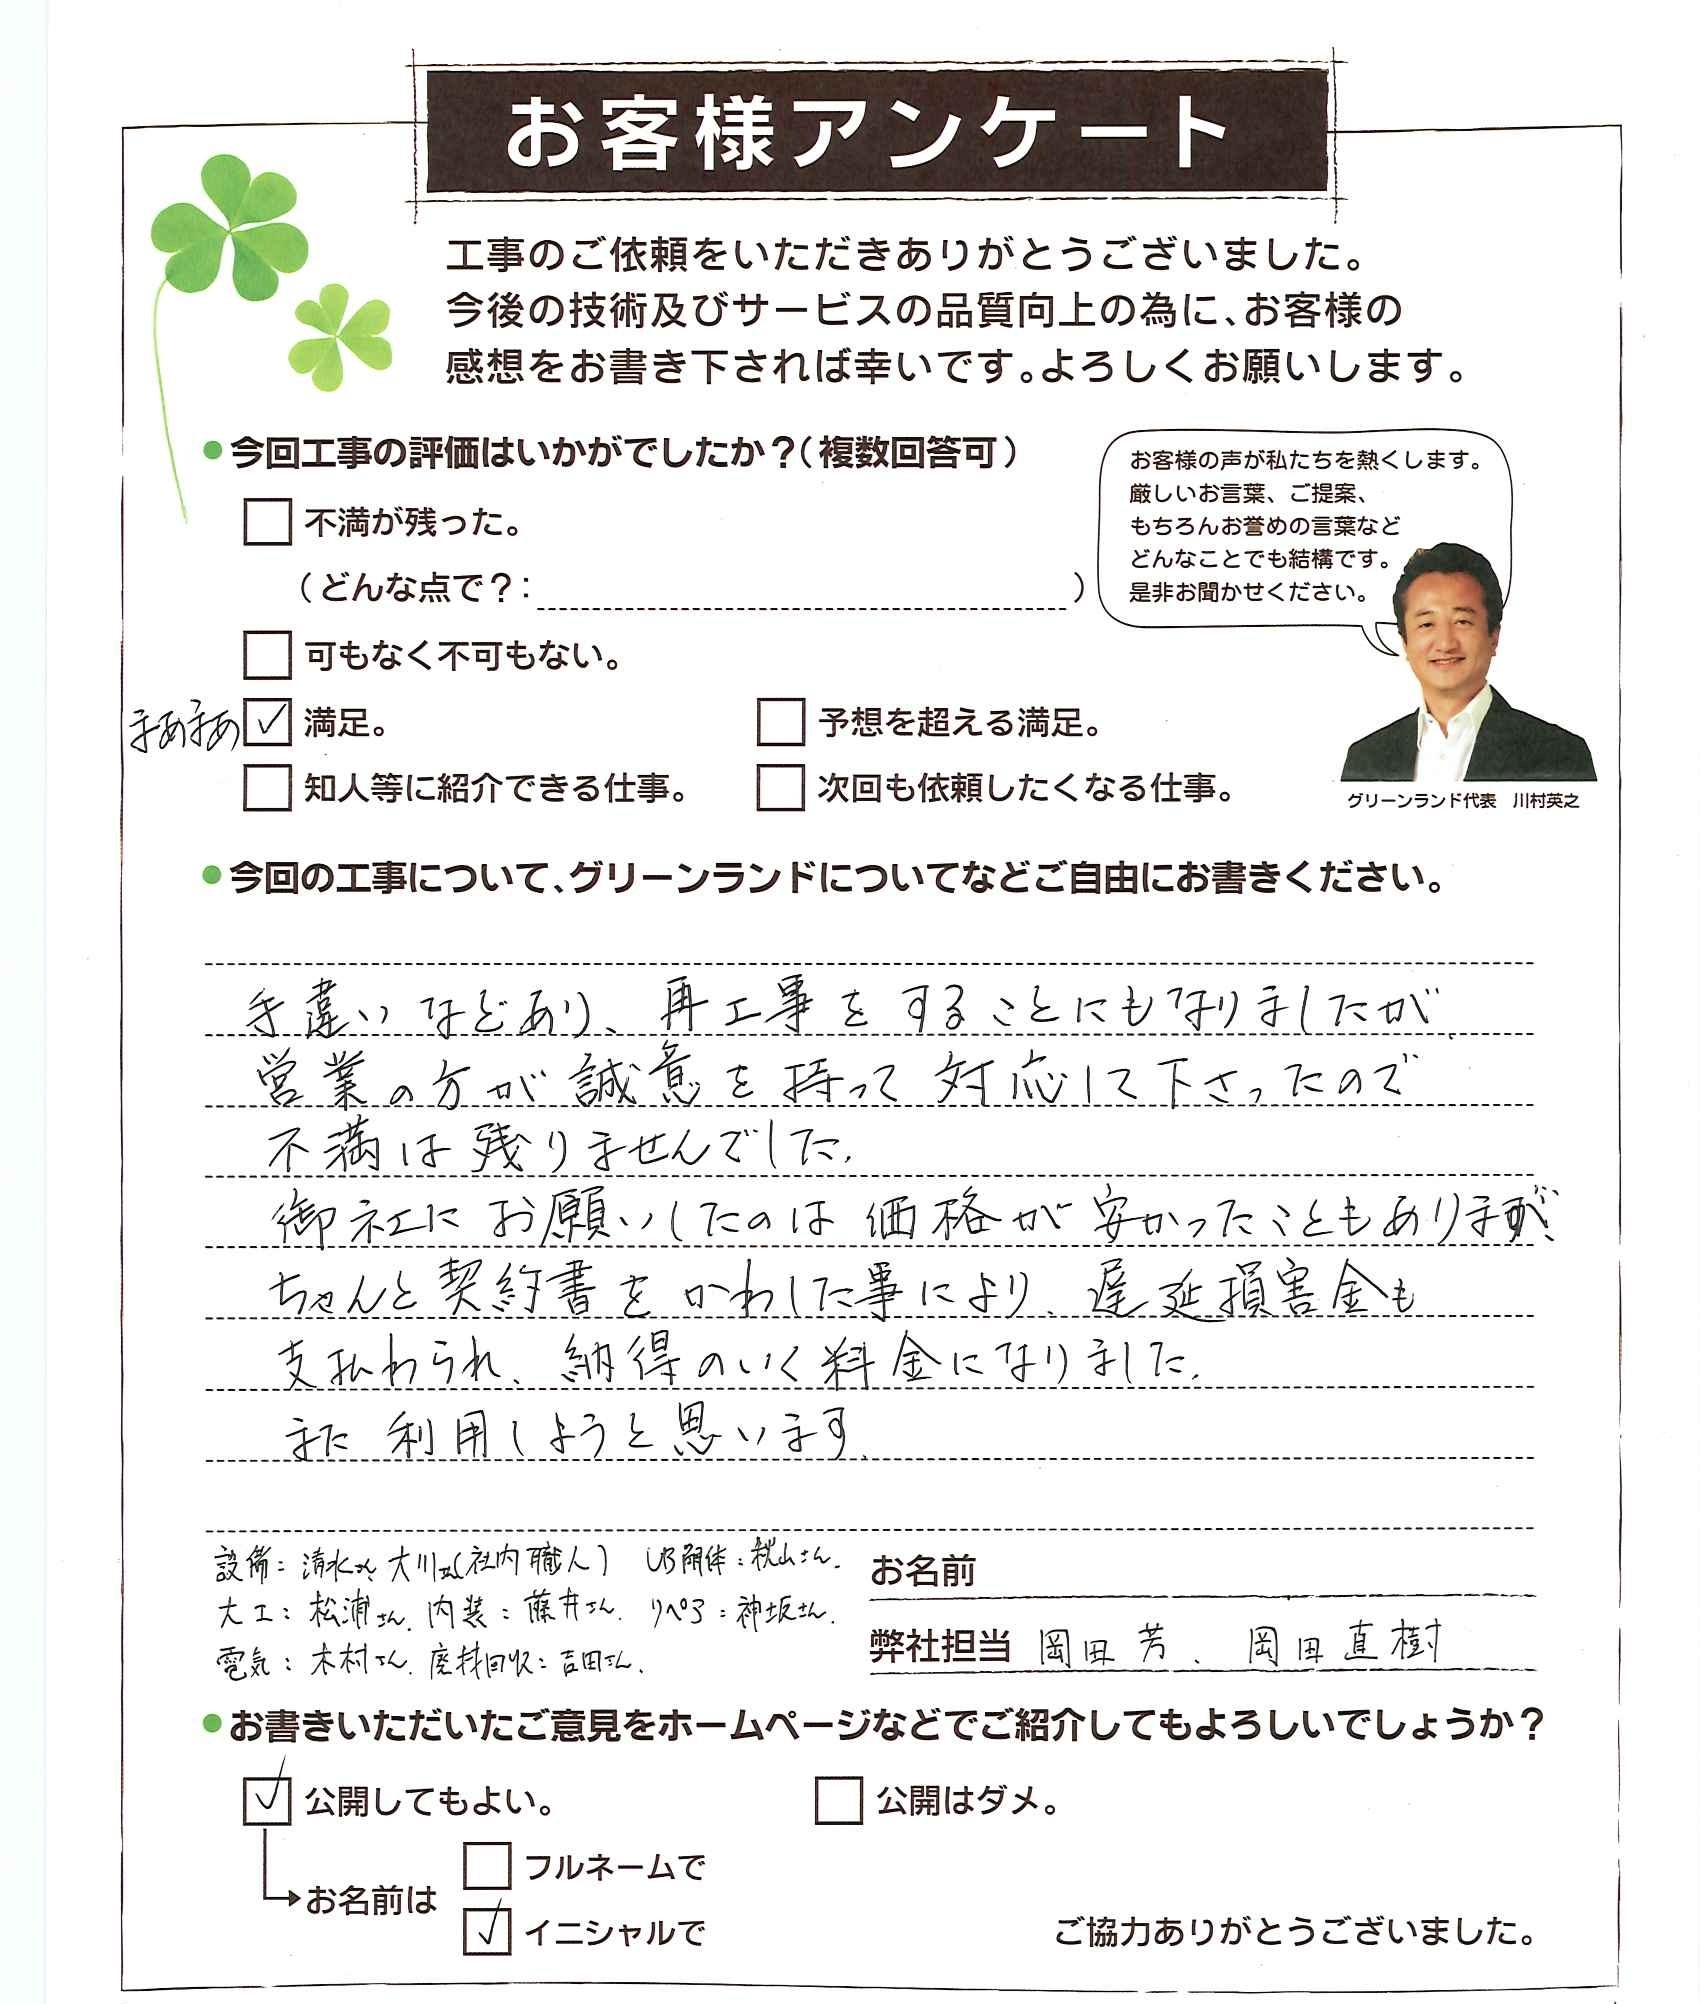 お客様アンケート
工事のご依頼をいただきありがとうございました。
今後の技術及びサービスの品質向上の為に、お客様の
感想をお書き下されば幸いです。よろしくお願いします。
●今回工事の評価はいかがでしたか？（複数回答可）
お客様の声が私たちを熱くします。
厳しいお言葉、ご提案、
もちろんお誉めの言葉など
どんなことでも結構です。
是非お聞かせください。
不満が残った。
（どんな点で？：　）
可もなく不可もない。
まあまあ ✓ 満足。
予想を超える満足。
知人等に紹介できる仕事。
次回も依頼したくなる仕事。
グリーンランド代表　川村英之
●今回の工事について、グリーンランドについてなどご自由にお書きください。
手違いなどあり、再工事をすることにもなりましたが
営業の方が誠意を持って対応して下さったので
不満は残りませんでした.
御社にお願いしたのは価格が安かったこともありますが、
ちゃんと契約書をかわした事により、遅延損害金も
支払わられ、納得のいく料金になりました.
また利用しようと思います.
設備：清水さん 大川さん(社内職人)　UB解体：秋山さん.
大工：松浦さん. 内装：藤井さん. リペア：神坂さん.
電気：木村さん. 廃材回収：吉田さん.
お名前
弊社担当 岡田 芳、岡田直樹
●お書きいただいたご意見をホームページなどでご紹介してもよろしいでしょうか？
✓ 公開してもよい。
公開はダメ。
お名前は
フルネームで
✓ イニシャルで
ご協力ありがとうございました。